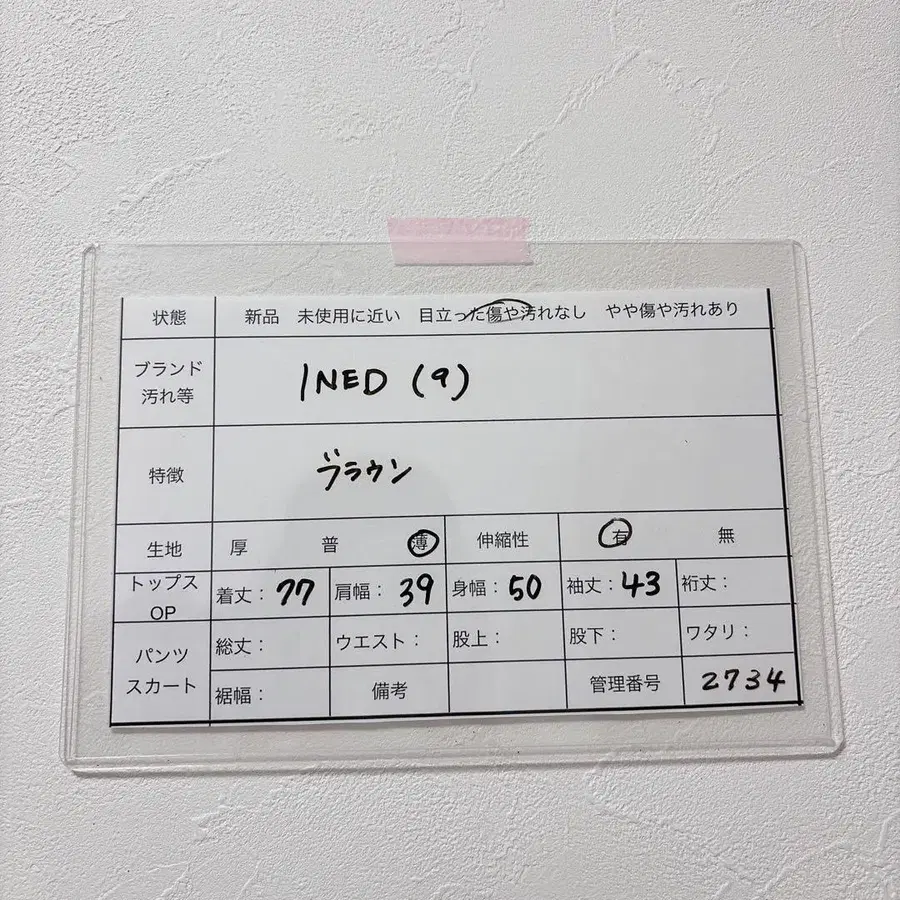 状態 新品 未使用に近い 目立った傷や汚れなし やや傷や汚れあり
ブランド
汚れ等
INED (9)
特徴 ブラウン
生地 厚 普 薄 伸縮性 有 無
トップス
OP
着丈：77 肩幅：39 身幅：50 袖丈：43 裄丈：
パンツ
スカート
総丈： ウエスト： 股上： 股下： ワタリ：
裾幅： 備考 管理番号 2734